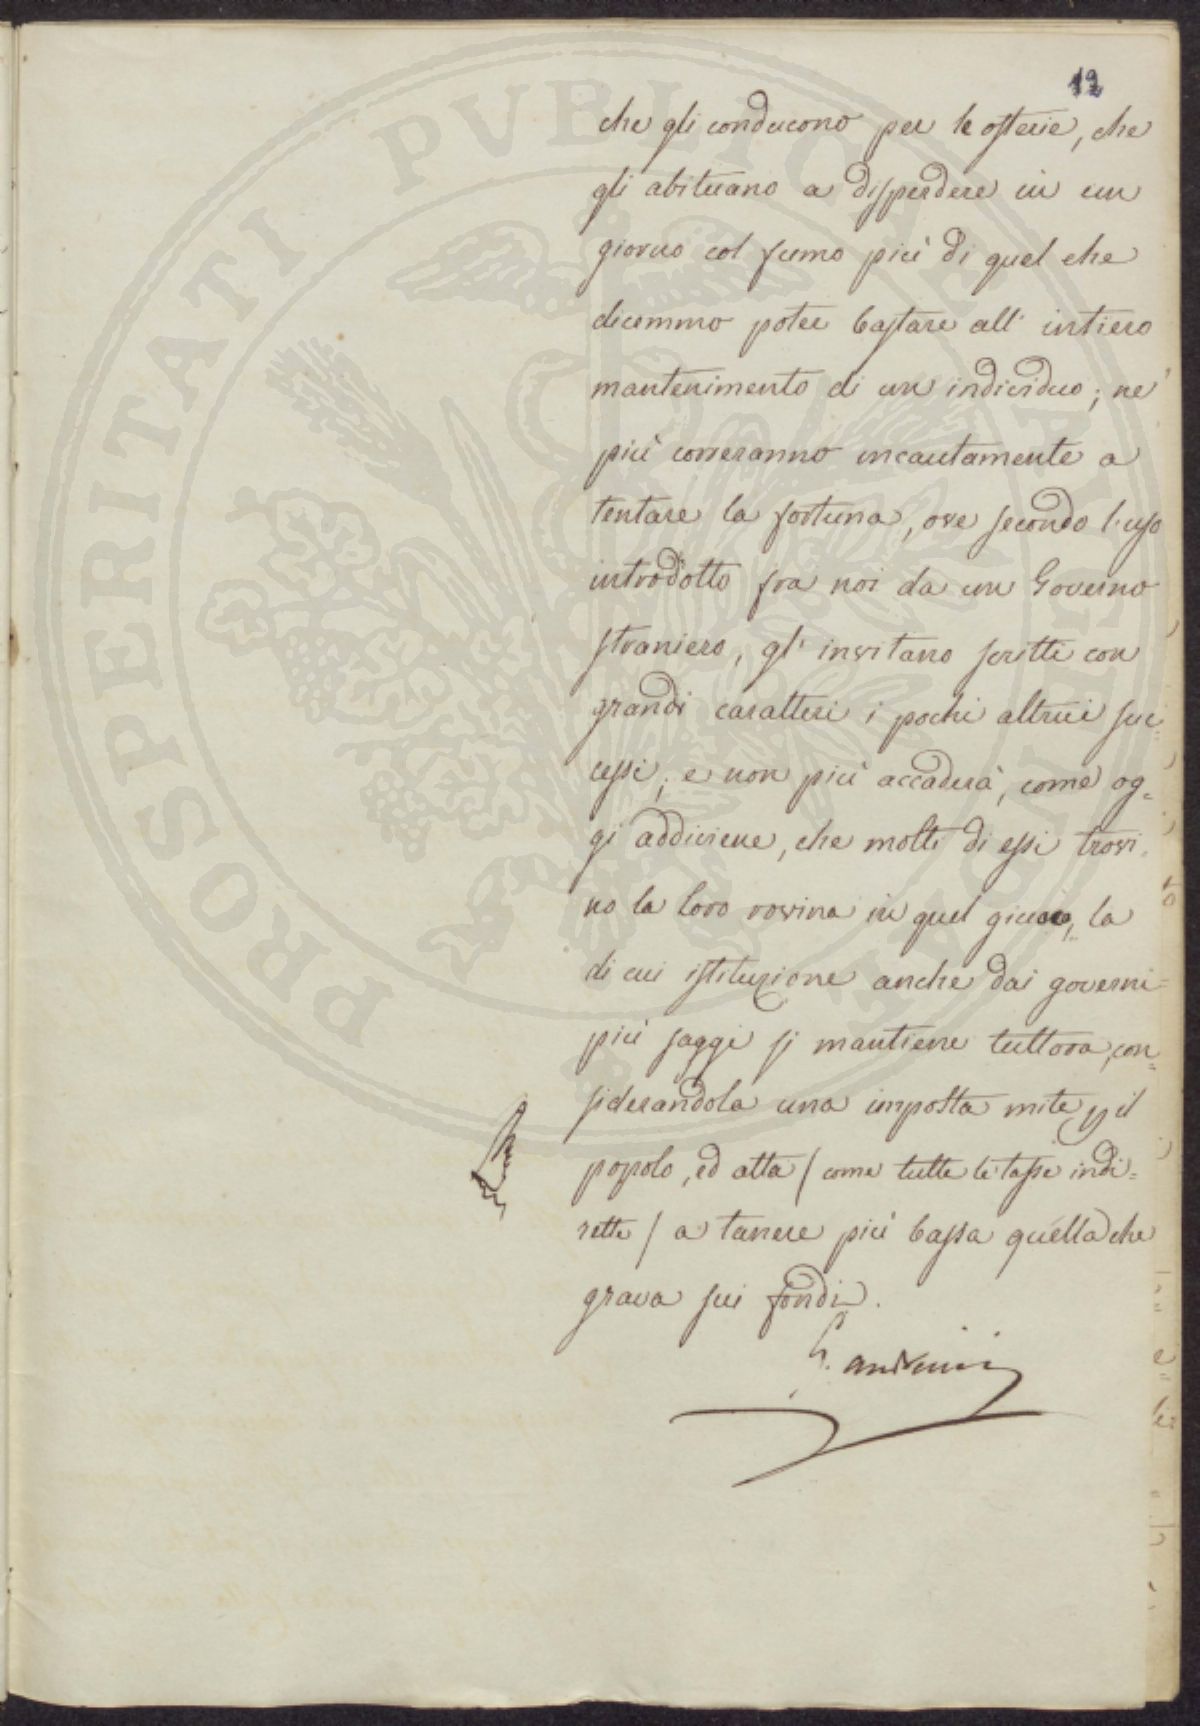 12
che gli conducono per le osterie, che
gli abituano a disperdere in un
giorno col fumo più di quel che
dicemmo poter bastare all' intiero
mantenimento di un individuo; ne'
più correranno incautamente a
tentare la fortuna, ove secondo l'uso
introdotto fra noi da un Governo
straniero, gl' invitano scritti con
grandi caratteri i pochi altrui suc=
cessi; e non più accaderà, come og=
gi addiviene, che molti di essi trovi=
no la loro rovina in quel giuoco, la
di cui istituzione anche dai governi
più saggi si mantiene tuttora, con=
siderandola una imposta mite pp il
popolo, ed atta / come tutte le tasse indi=
rette / a tenere più bassa quella che
grava sui fondi.
PROSPERITATI PVBLICAE AVGENDAE